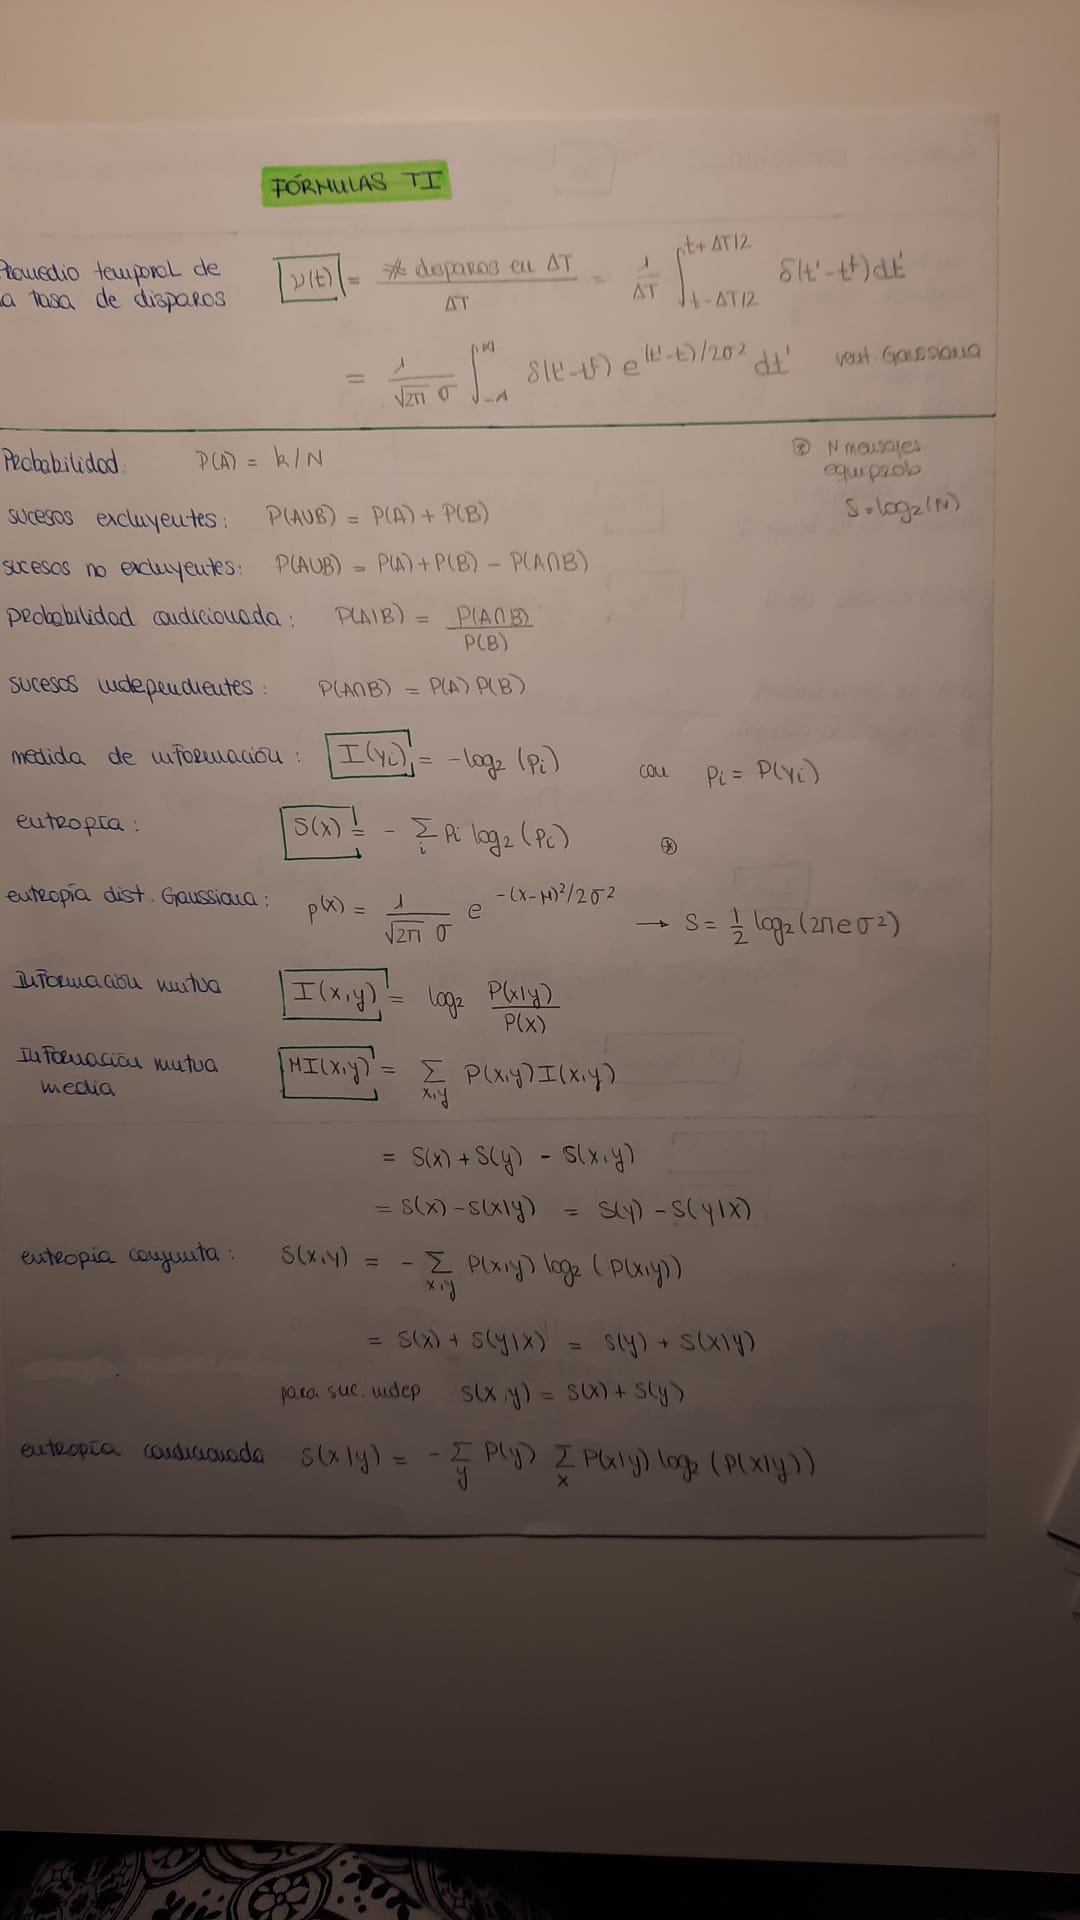 FÓRMULAS TI
Promedio temporal de
a tasa de disparos
ν(t) = # disparos en ΔT / ΔT = 1/ΔT ∫_{t-ΔT/2}^{t+ΔT/2} δ(t'-t^f) dt'
= 1/(√2π σ) ∫_{-∞}^{∞} δ(t'-t^f) e^{(t'-t)/2σ²} dt' vent. Gaussiana
Probabilidad: P(A) = k/N
⊛ N mensajes
equiprob
S = log₂(N)
sucesos excluyentes: P(A∪B) = P(A) + P(B)
sucesos no excluyentes: P(A∪B) = P(A) + P(B) - P(A∩B)
probabilidad condicionada: P(A|B) = P(A∩B) / P(B)
sucesos independientes: P(A∩B) = P(A) P(B)
medida de información: I(yi) = -log₂(pi) con pi = P(yi)
entropía: S(x) = - Σ_i pi log₂(pi) ⊛
entropía dist. Gaussiana: p(x) = 1/(√2π σ) e^{-(x-μ)²/2σ²} → S = 1/2 log₂(2πeσ²)
Información mutua I(x,y) = log₂ P(x|y) / P(x)
Información mutua
media
MI(x,y) = Σ_{x,y} P(x,y) I(x,y)
= S(x) + S(y) - S(x,y)
= S(x) - S(x|y) = S(y) - S(y|x)
entropía conjunta: S(x,y) = - Σ_{x,y} P(x,y) log₂(P(x,y))
= S(x) + S(y|x) = S(y) + S(x|y)
para suc. indep S(x,y) = S(x) + S(y)
entropía condicionada S(x|y) = - Σ_y P(y) Σ_x P(x|y) log₂(P(x|y))